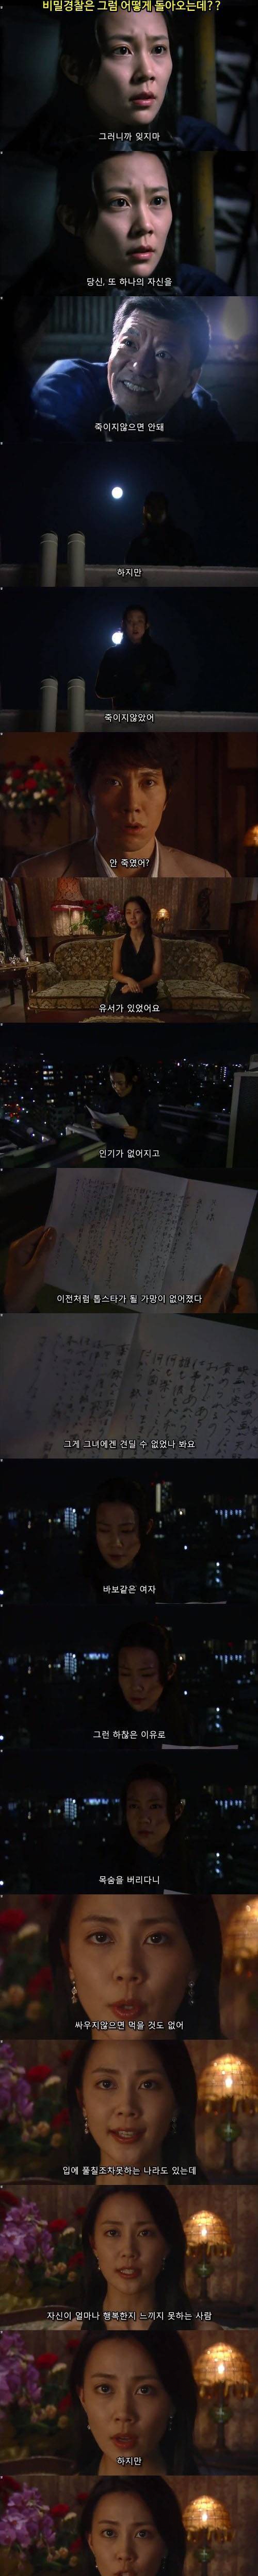 비밀경찰은 그럼 어떻게 돌아오는데??
그러니까 잊지마
당신, 또 하나의 자신을
죽이지않으면 안돼
하지만
죽이지않았어
안 죽였어?
유서가 있었어요
인기가 없어지고
이전처럼 톱스타가 될 가망이 없어졌다
그게 그녀에겐 견딜 수 없었나 봐요
바보같은 여자
그런 하찮은 이유로
목숨을 버리다니
싸우지않으면 먹을 것도 없어
입에 풀칠조차못하는 나라도 있는데
자신이 얼마나 행복한지 느끼지 못하는 사람
하지만